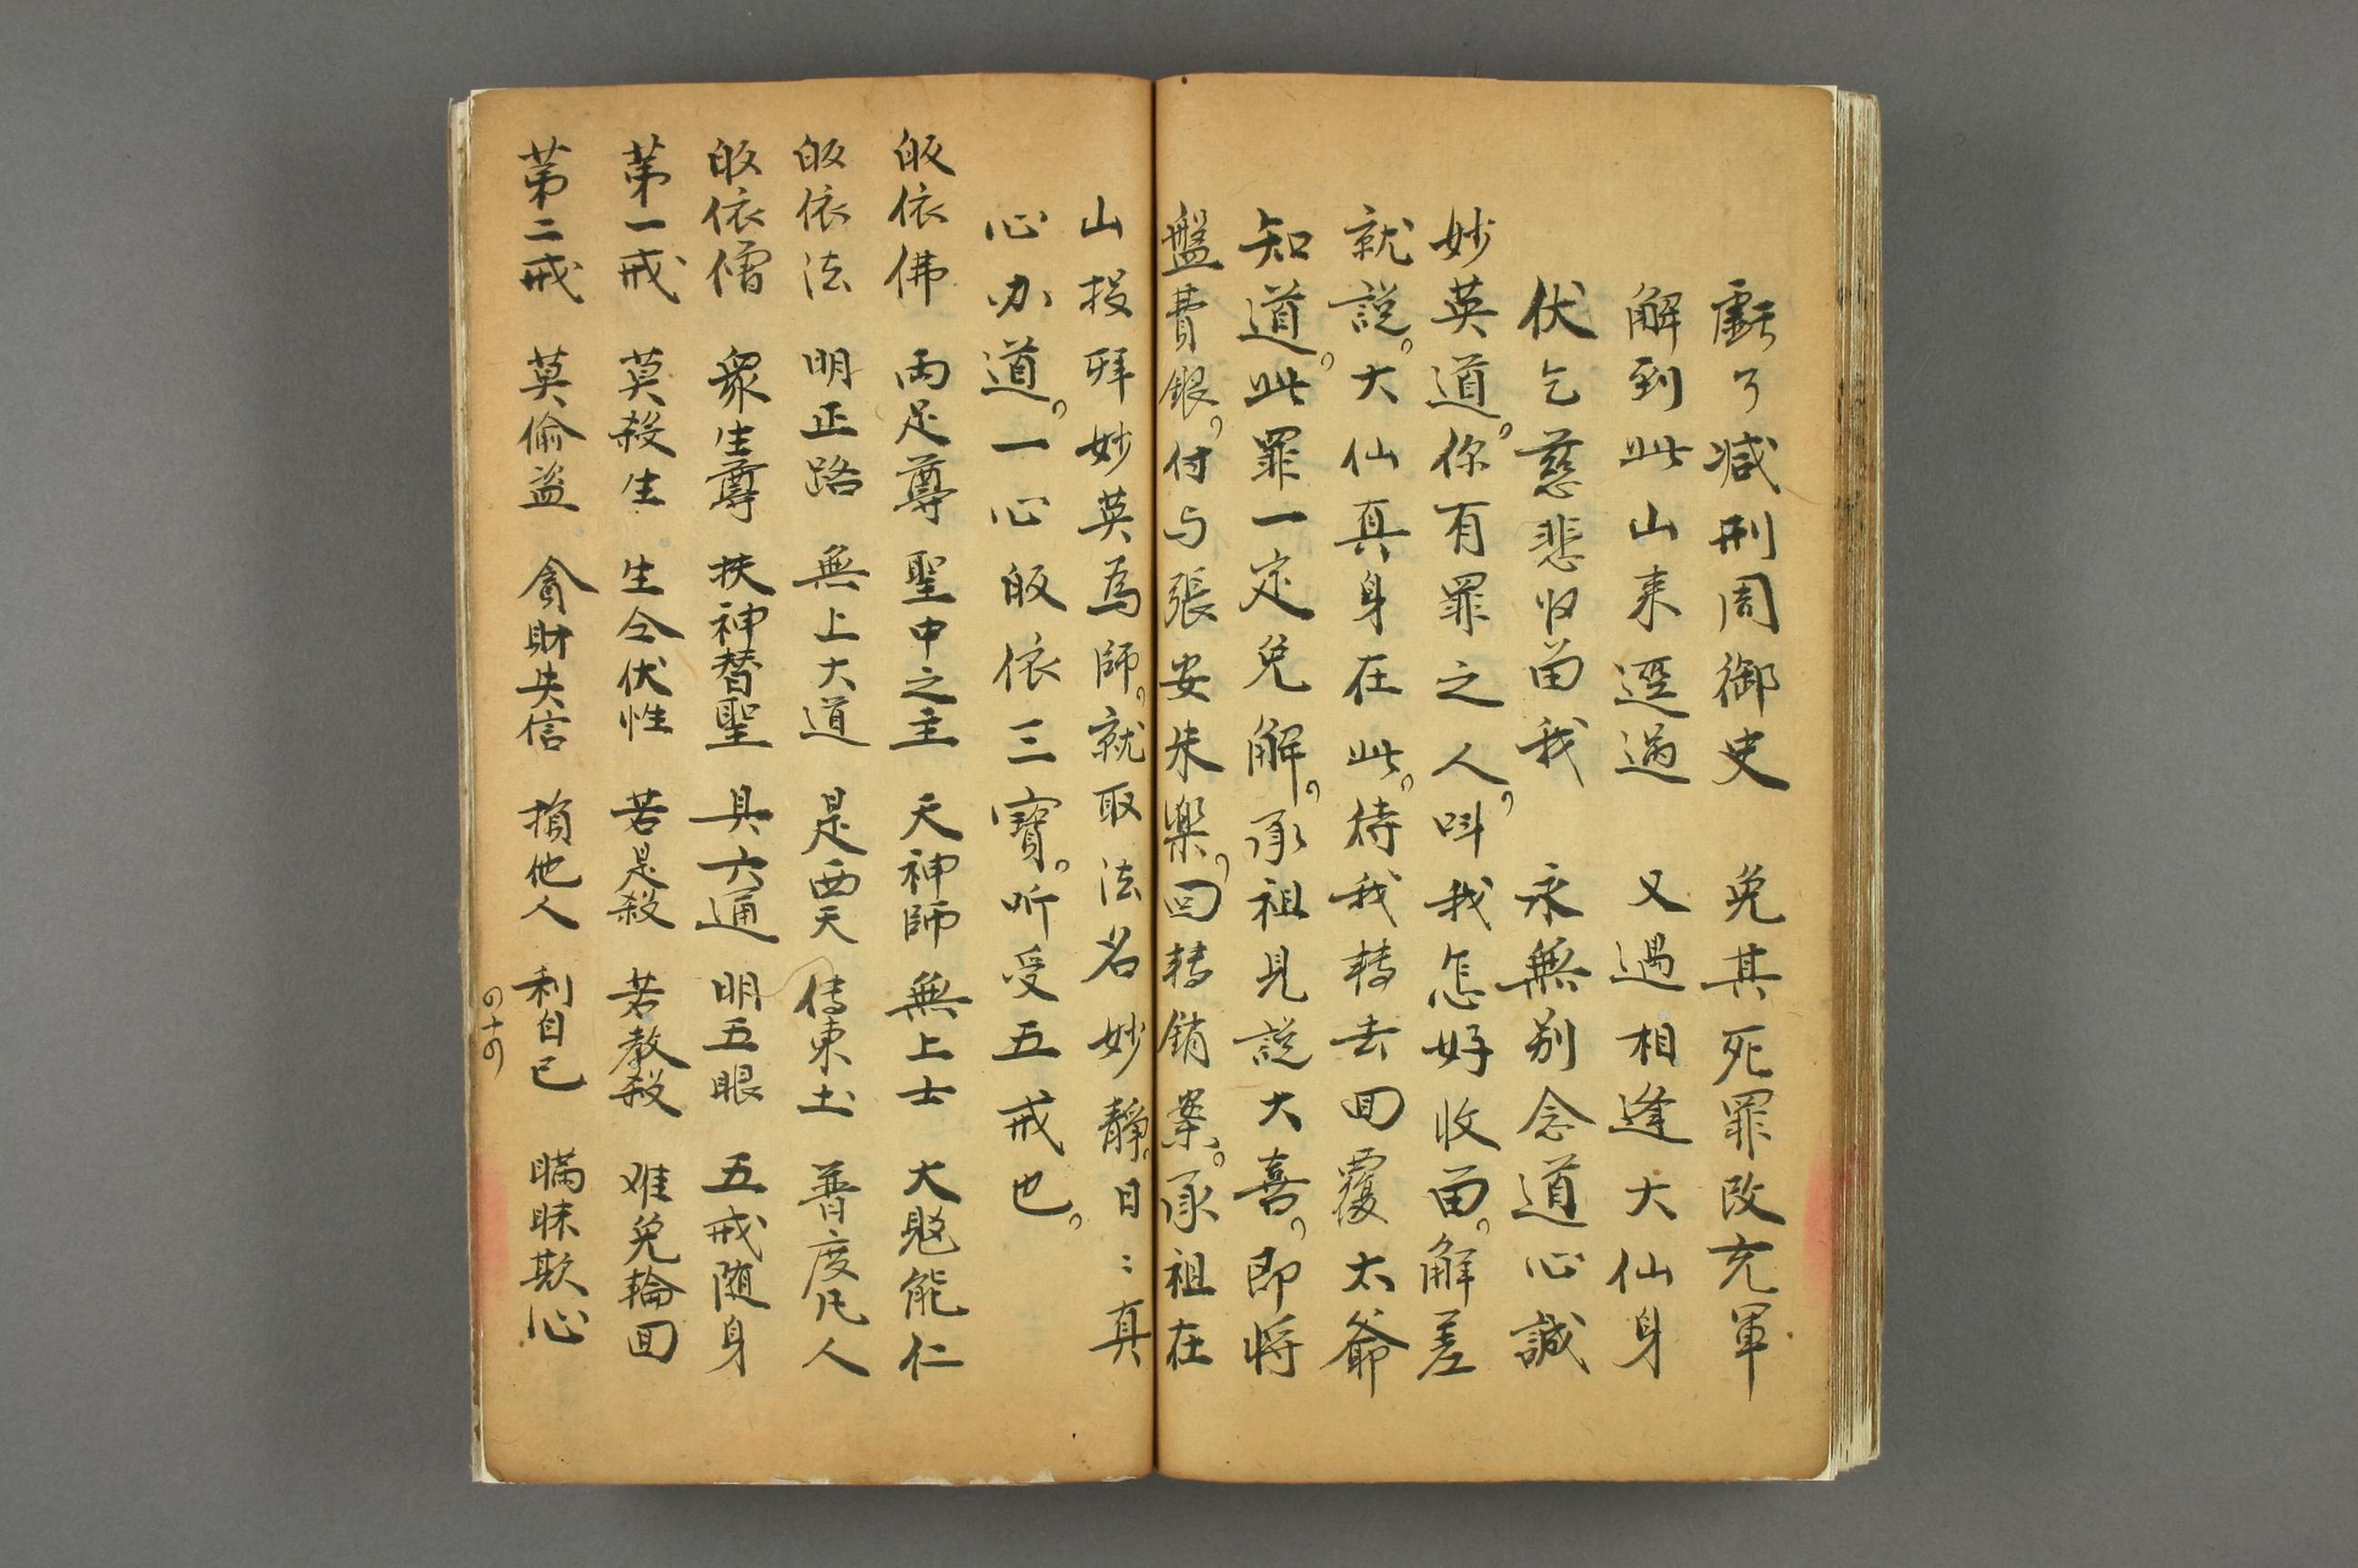 虧了减刑周御史　免其死罪改充軍
解到此山来逕过　又遇相逢大仙身
伏乞慈悲收畄我　永無别念道心誠
妙英道。你有罪之人。呌我怎好收畄。解差
就説。大仙真身在此。待我轉去回覆太爺
知道。此罪一定免解。承祖見説大喜。即将
盤費銀。付与張安朱樂。回轉銷案。承祖在
山投拜妙英為師。就取法名妙静。日〻真
心办道。一心皈依三寶。听受五戒也。
皈依佛　兩足尊　聖中之主　天神師　無上士　大慈能仁
皈依法　明正路　無上大道　是西天　传東土　普度凡人
皈依僧　衆生尊　扶神替聖　具六通　明五眼　五戒随身
苐一戒　莫殺生　生仝伏性　若是殺　若教殺　难免輪回
苐二戒　莫偷盗　貪財失信　損他人　利自己　瞞昧欺心
の十の